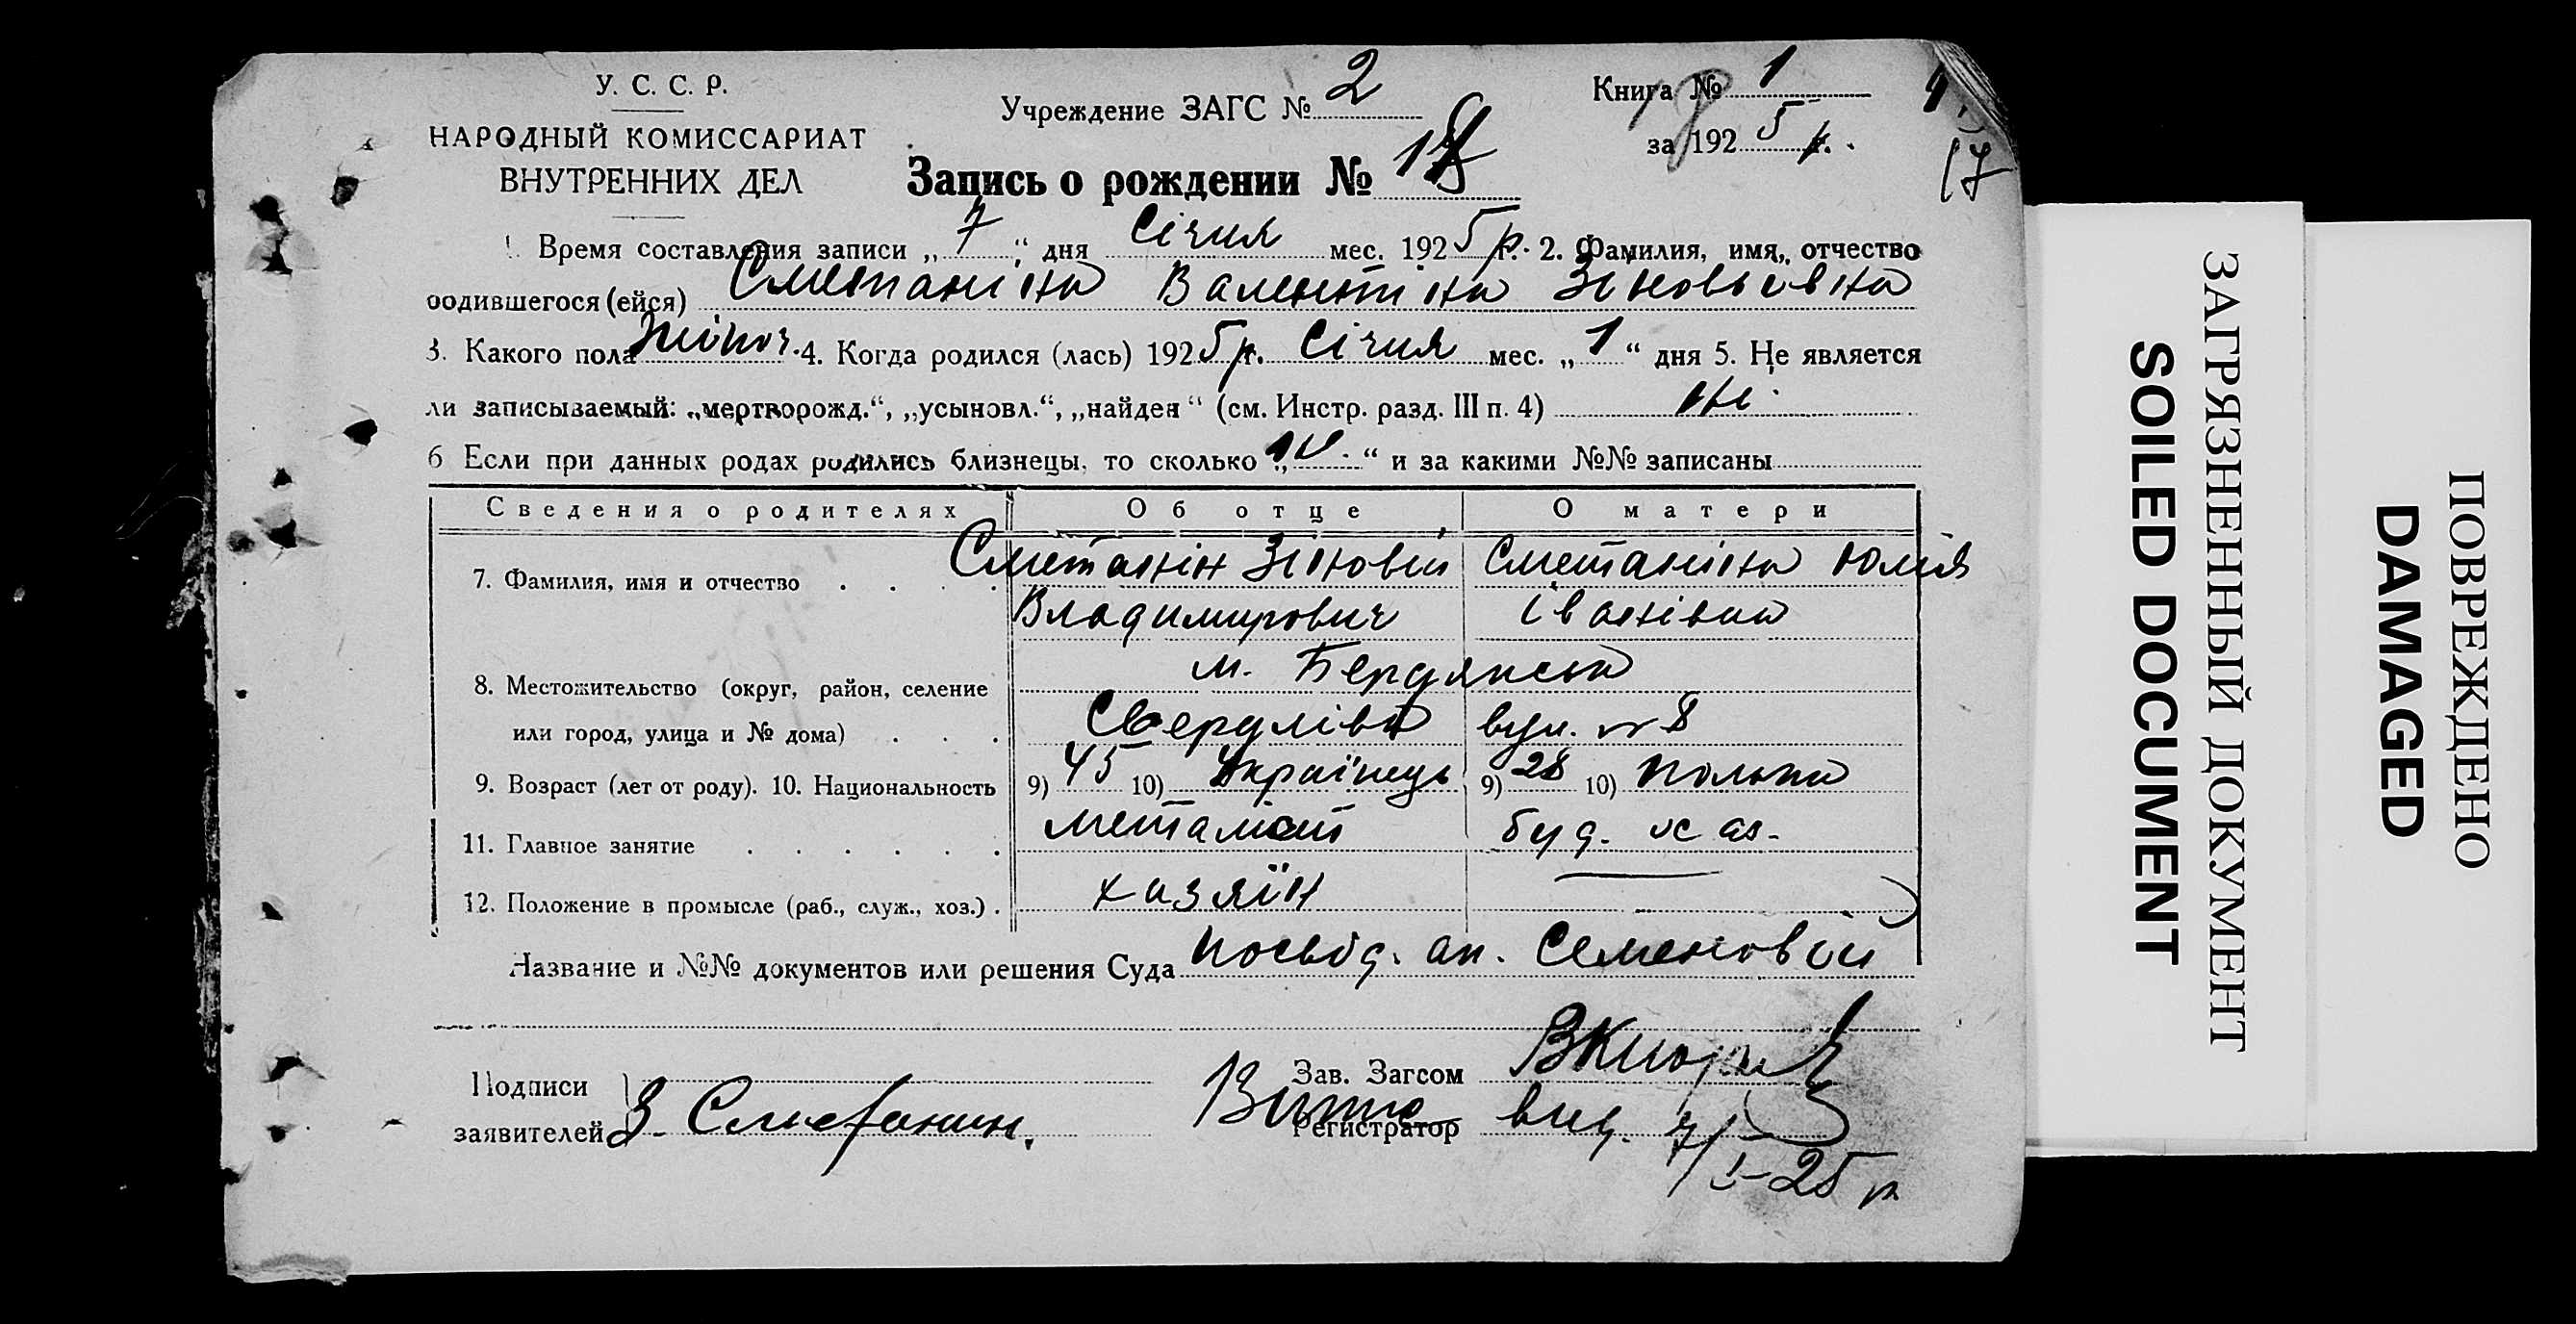 У. С. С. Р.
НАРОДНЫЙ КОМИССАРИАТ
ВНУТРЕННИХ ДЕЛ
Учреждение ЗАГС № 2
Книга № 1
за 192 5 р.
17
Запись о рождении №
1. Время составления записи „ 7 “ дня Січня мес. 192 5 р. 2. Фамилия, имя, отчество
родившегося (ейся) Сметаніна Валентіна Зіновьівна
3. Какого пола жіноч. 4. Когда родился (лась) 192 5 р. Січня мес. „ 1 “ дня 5. Не является
ли записываемый: „мертворожд.“, „усыновл.“, „найден“ (см. Инстр. разд. III п. 4) ні
6 Если при данных родах родились близнецы, то сколько „ “ и за какими №№ записаны
Сведения о родителях Об отце О матери
7. Фамилия, имя и отчество . . . . Сметанін Зіновій Сметаніна Юлія
Владимирович Іванівна
м. Бердянськ
8. Местожительство (округ, район, селение
или город, улица и № дома) . . . Свердліва вул. № 8
9. Возраст (лет от роду). 10. Национальность 9) 45 10) Українець 9) 28 10) полька
11. Главное занятие . . . . . . металіст
12. Положение в промысле (раб., служ., хоз.) . хазяїн
Название и №№ документов или решения Суда посвід. ак. Семеновой
Подписи
заявителей З. Сметанин.
Зав. Загсом
Регистратор
7/I-25 р
ЗАГРЯЗНЕННЫЙ ДОКУМЕНТ
SOILED DOCUMENT
ПОВРЕЖДЕНО
DAMAGED